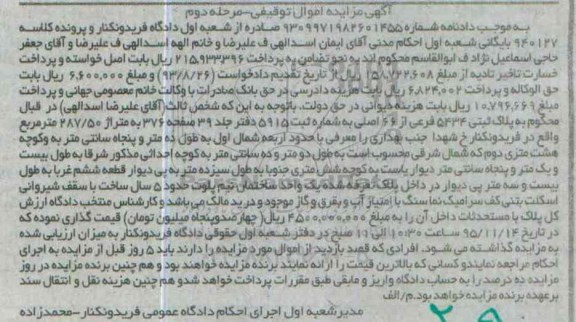 آگهی مزایده اموال توقیفی-مرحله دوم
به موجب دادنامه شماره ۹۳۰۹۹۷۱۹۸۲۶۰۱۴۵۵ صادره از شعبه اول دادگاه فریدونکنار و پرونده کلاسه
۹۴۰۱۲۷ بایگانی شعبه اول احکام مدنی آقای ایمان اسدالهی ف علیرضا و خانم الهه اسدالهی ف علیرضا و آقای جعفر
حاجی اسماعیل نژاد ف ابوالقاسم محکوم اند به نحو تضامن به پرداخت ۲۱۵,۹۳۳۳۹۶ ریال بابت اصل خواسته و پرداخت
خسارت تاخیر تادیه از مبلغ ۱۵۸,۷۲۲,۶۰۸ ریال از تاریخ تقدیم دادخواست (۹۳/۸/۲۶) و مبلغ ۶,۶۰۰,۰۰۰ ریال بابت
حق الوکاله و پرداخت ۶,۸۲۴,۰۰۲ ریال بابت هزینه دادرسی در حق بانک صادرات با وکالت خانم معصومی جهانی و پرداخت
مبلغ ۱۰,۷۹۶,۶۶۹ ریال بابت هزینه دیوانی در حق دولت. باتوجه به این که شخص ثالث (آقای علیرضا اسدالهی) در قبال
محکوم به پلاک ثبتی ۵۴۳۴ فرعی از ۶۶ اصلی به شماره ثبت ۵۹۱۵ دفتر جلد ۳۹ صفحه ۳۷۶ به متراژ ۲۸۷/۵۰ مترمربع
واقع در فریدونکنار خ شهدا جنب بهداری را معرفی با حدود اربعه شمال اول به طول ده متر و پنجاه سانتی متر به وکوچه
هشت متری دوم که شمال شرقی محسوب است به طول دو متر و که سانتی متر به کوچه احداثی مذکور شرقا به طول بیست
و یک متر و پنجاه سانتی متر دیوار یاست به کوچه شش متری جنوبا به طول سیزده متر به پی دیوار قطعه ششم غربا به طول
بیست و سه متر پی دیوار در داخل پلاک تعرفه شده یک واحد ساختمان نیم پلوت حدود ۵ سال ساخت با سقف شیروانی
اسکلت بتنی کف سرامیک نما سنگ با امتیاز آب و برق و گاز موجود و در ید مالک می باشد و کارشناس منتخب دادگاه ارزش
کل پلاک با مستحدثات داخل آن را به مبلغ ۴۵۰۰,۰۰۰,۰۰۰ ریال( چهارصدوپنجاه میلیون تومان) قیمت گذاری نموده که
در تاریخ ۹۵/۱۱/۱۴ ساعت ۱۰:۳۰ الی ۱۱ صبح در دفتر شعبه اول حقوقی دادگاه فریدونکنار به میزان ارزیابی شده
به مزایده گذاشته می شود. افرادی که قصد بازدید از اموال مورد مزایده را دارند باید ۵ روز قبل از مزایده به اجرای
احکام مراجعه نمایندو کسانی که بالاترین قیمت را ارائه نمایند برنده مزایده خواهند بود و هم چنین برنده مزایده در روز
مزایده ده درصد را به حساب دادگاه واریز و مابقی طبق مقررات پرداخت خواهد شدو هم چنین هزینه نقل و انتقال سند
برعهده برنده مزایده خواهد بود.م/الف
مدیر شعبه اول اجرای احکام دادگاه عمومی فریدونکنار-محمدزاده